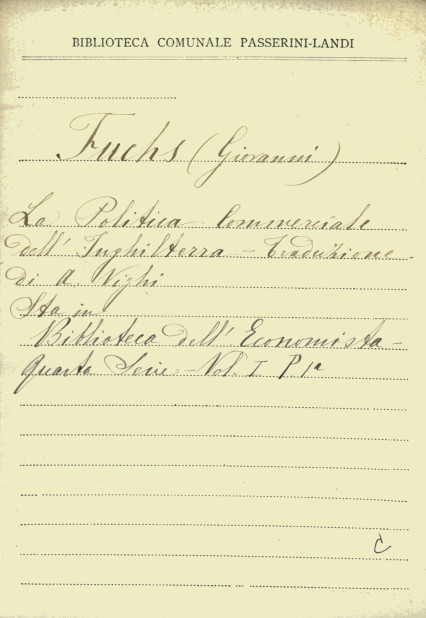 BIBLIOTECA COMUNALE PASSERINI-LANDI
Fuchs (Giovanni)
La Politica Commerciale
dell' Inghilterra - Traduzione
di A. Vighi
Sta in
Biblioteca dell' Economista -
Quarta Serie - Vol. I P 1a
C